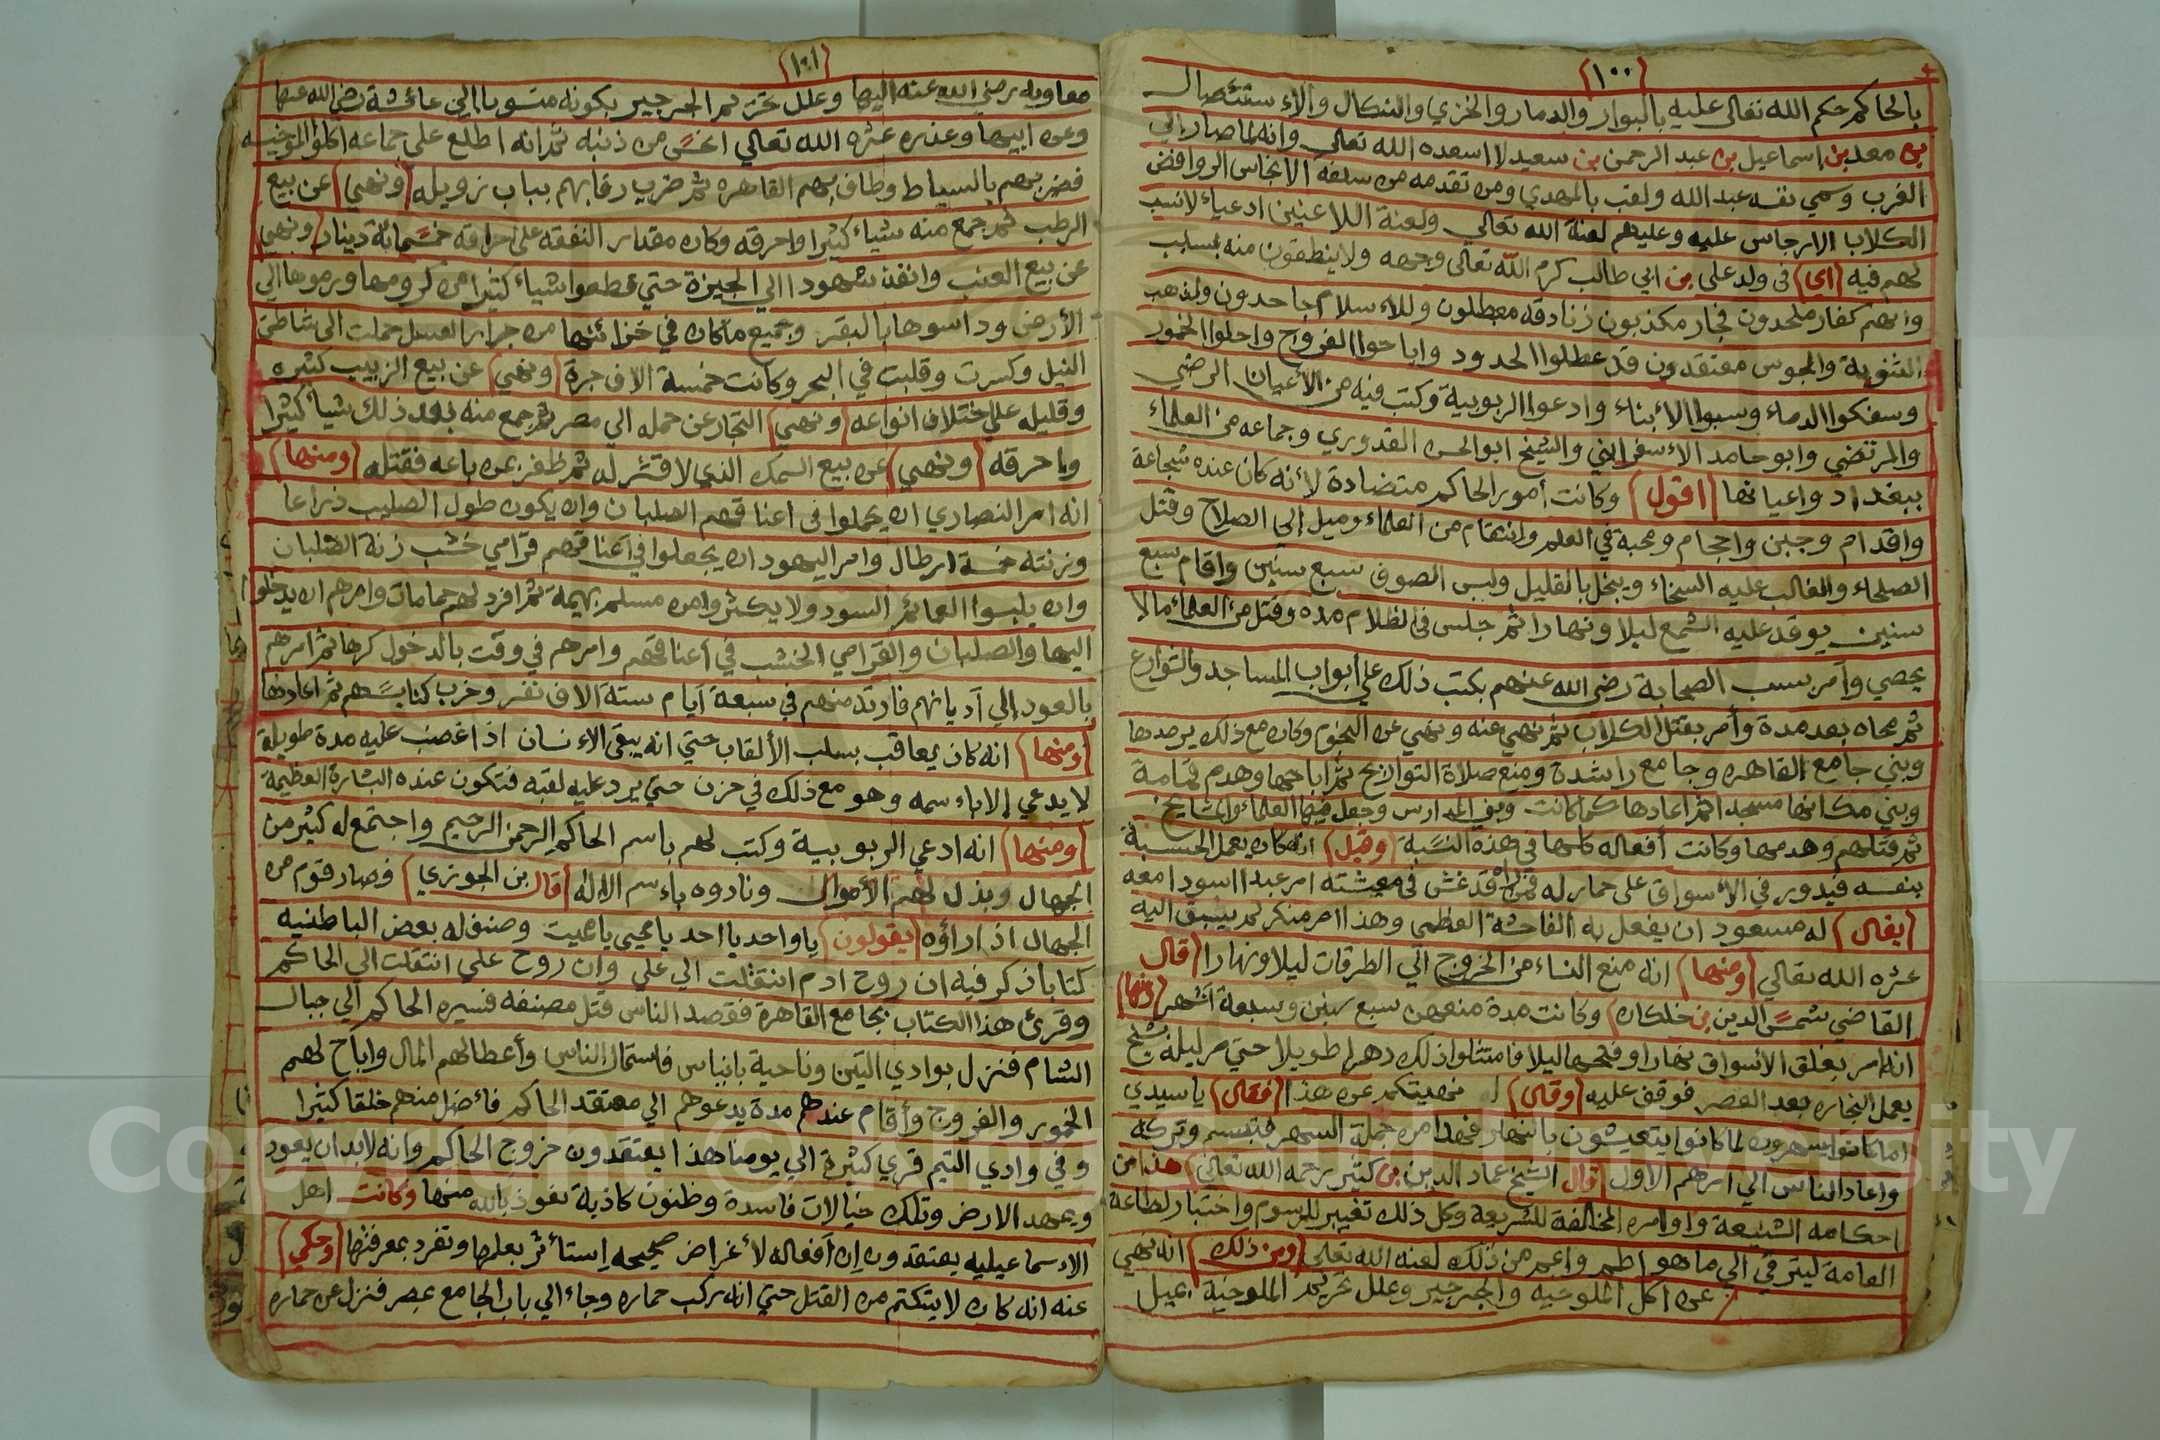 (١٠٠)
بالحاكم حكم الله تعالى عليه بالبوار والدمار والخزي والنكال والاءستئصال
بن معد بن اسماعيل بن عبد الرحمن بن سعيد لا اسعده الله تعالى وانه لما صار إلي
الغرب وسمي نفسه عبد الله ولقب بالمهدي ومن تقدمه من سلفه الانجاس الروافض
الكلاب الارجاس عليه وعليهم لعنة الله تعالي ولعنة اللاعنين ادعياء لانسب
لهم فيه (اي) في ولد علي بن ابي طالب كرم الله تعالى وجهه ولا ينطقون منه بسبب
وانهم كفار ملحدون فجار مكذبون زنادقه معطلون وللاءسلام جاحدون ولمذهب
الثنوية والمجوس معتقدون قد عطلوا الحدود واباحوا الفروج واحلوا الخمور
وسفكوا الدماء وسبوا الأبناء وادعوا الربوبية وكتب فيه من الأعيان الرضي
والمرتضي وابو حامد الاءسفرايني والشيخ ابو الحسن القدوري وجماعه من العلماء
ببغداد واعيانها (اقول) وكانت أمور الحاكم متضادة لأنه كان عنده شجاعة
واقدام وجبن واحجام ومحبة في العلم وانتقام من العلماء وميل إلي الصلاح وقتل
الصلحاء والغالب عليه السخاء ويبخل بالقليل ولبس الصوف سبع سنين واقام سبع
سنين يوقد عليه الشمع ليلا ونهارا ثم جلس في الظلام مده وقتل من العلماء مالا
يحصي وأمر بسب الصحابة رضي الله عنهم بكتب ذلك علي أبواب المساجد والشوارع
ثم محاه بعد مدة وأمر بقتل الكلاب ثم نهي عنه ونهي عن النجوم وكان مع ذلك يرصدها
وبني جامع القاهره وجامع راشدة ومنع صلاة التواريح ثم اباحها وهدم قمامة
وبني مكانها مسجدا ثم اعادها كما كانت وبني المدارس وجعل فيها العلماء والمشايخ
ثم قتلهم وهدمها وكانت أفعاله كلها في هذه النسبة (وقيل) انه كان يعمل الحسبة
بنفسه فيدور في الأسواق على حمار له فمن قد غش في معيشته امر عبدا اسودا معه
(يقال) له مسعود ان يفعل به الفاحشة العظمي وهذا امر منكر لم يسبق اليه
عثره الله تعالي (ومنها) انه منع النساء من الخروج الي الطرقات ليلا ونهارا (قال
القاضي شمس الدين بن خلكان) وكانت مدة منعهن سبع سنين وسبعة اشهر (ومنها)
انه امر بغلق الأسواق نهارا وفتحها ليلا فامتثلوا ذلك دهرا طويلا حتي مر ليلة بشيخ
يعمل النجاره بعد العصر فوقف عليه (وقال) له نهيتكم عن هذا (فقال) يا سيدي
اما كانوا يسهرون لما كانوا يتعيشون بالنهار فهذا من جملة السهر فتبسم وتركه
واعاد الناس الي امرهم الاول (قال) الشيخ عماد الدين بن كثير رحمه الله تعالي) هذا من
احكامه الشنيعة واوامره المخالفة للشريعة وكل ذلك تغيير للرسوم واختبار لطاعة
العامة ليترقي الي ما هو اطم واعم من ذلك لعنه الله تعالى (ومن ذلك) انه نهي
عن اكل الملوخيه والجرجير وعلل تحريم الملوخية بميل
(١٠١)
معاويه رضي الله عنه اليها وعلل تحريم الجرجير بكونه منسوبا إلي عائشة رضي الله عنها
وعن ابيها وعذره عثره الله تعالي اخس من ذنبه ثم انه اطلع علي جماعه اكلوا الملوخيه
فضربهم بالسياط وطاف بهم القاهره ثم ضرب رقابهم بباب زويله (ونهي) عن بيع
الرطب ثم جمع منه شياء كثيرا واحرقه وكان مقدار النفقه على احراقه خمسمائة دينار (ونهي)
عن بيع العنب وانفذ شهودا الي الجيزة حتي قطعوا شياء كثيرا من كرومها ورموها الي
الأرض وداسوها بالبقر وجميع ما كان في خزائنها من جرار العسل حملت الى شاطئ
النيل وكسرت وقلبت في البحر وكانت خمسة الاف جرة (ونهي) عن بيع الزبيب كثيره
وقليله على اختلاف انواعه (ونهي) التجار عن حمله الي مصر ثم جمع منه بعد ذلك شياء كثيرا
واحرقه (ونهي) عن بيع السمك الذي لا قشر له ثم ظفر بمن باعه فقتله (ومنها)
انه امر النصاري ان يحملوا في اعناقهم الصلبان وان يكون طول الصليب ذراعا
وزنته خمسة ارطال وامر اليهود ان يجعلوا في اعناقهم قرامي خشب زنة الصلبان
وان يلبسوا العمائم السود ولا يكتروا من مسلم بهيمة ثم افرد لهم حمامات وامرهم ان يدخلوا
اليها والصلبان والقرامي الخشب في أعناقهم وامرهم في وقت بالدخول كرها ثم امرهم
بالعود إلي أديانهم فارتد منهم في سبعة أيام ستة الاف نفر وخرب كنايسهم ثم اعادها
(ومنها) انه كان يعاقب بسلب الألقاب حتي انه يبقي الاءنسان اذا غضب عليه مدة طويلة
لا يدعي إلا باءسمه وهو مع ذلك في حزن حتي يرد عليه لقبه فتكون عنده البشارة العظيمة
(ومنها) انه ادعي الربوبية وكتب لهم باسم الحاكم الرحمن الرحيم واجتمع له كثير من
الجهال وبذل لهم الأموال ونادوه باءسم الاله (قال بن الجوزي) فصار قوم من
الجهال اذا رأؤه (يقولون) يا واحد يا احد يا محيي يا مميت وصنف له بعض الباطنيه
كتابا ذكر فيه ان روح ادم انتقلت الي علي وان روح علي انتقلت الي الحاكم
وقرئ هذا الكتاب بجامع القاهرة فقصد الناس قتل مصنفه فسيره الحاكم الي جبال
الشام فنزل بوادي التين وناحية بانياس فاستمال الناس وأعطا لهم المال واباح لهم
الخمور والفروج وأقام عندهم مدة يدعوهم الي معتقد الحاكم فاءضل منهم خلقا كثيرا
وفي وادي التيم قري كثيرة الي يومنا هذا يعتقدون خروج الحاكم وانه لابد ان يعود
ويمهد الارض وتلك خيالات فاسدة وظنون كاذبة نعوذ بالله منها وكانت اهل
الاءسماعيليه يعتقدون إن أفعاله لأغراض صحيحه إستأثر بعلمها وتفرد بمعرفتها (وحكي)
عنه انه كان لا يتكتم من القتل حتي انه ركب حماره وجاء الي باب الجامع عصر فنزل عن حماره
Copyright © University